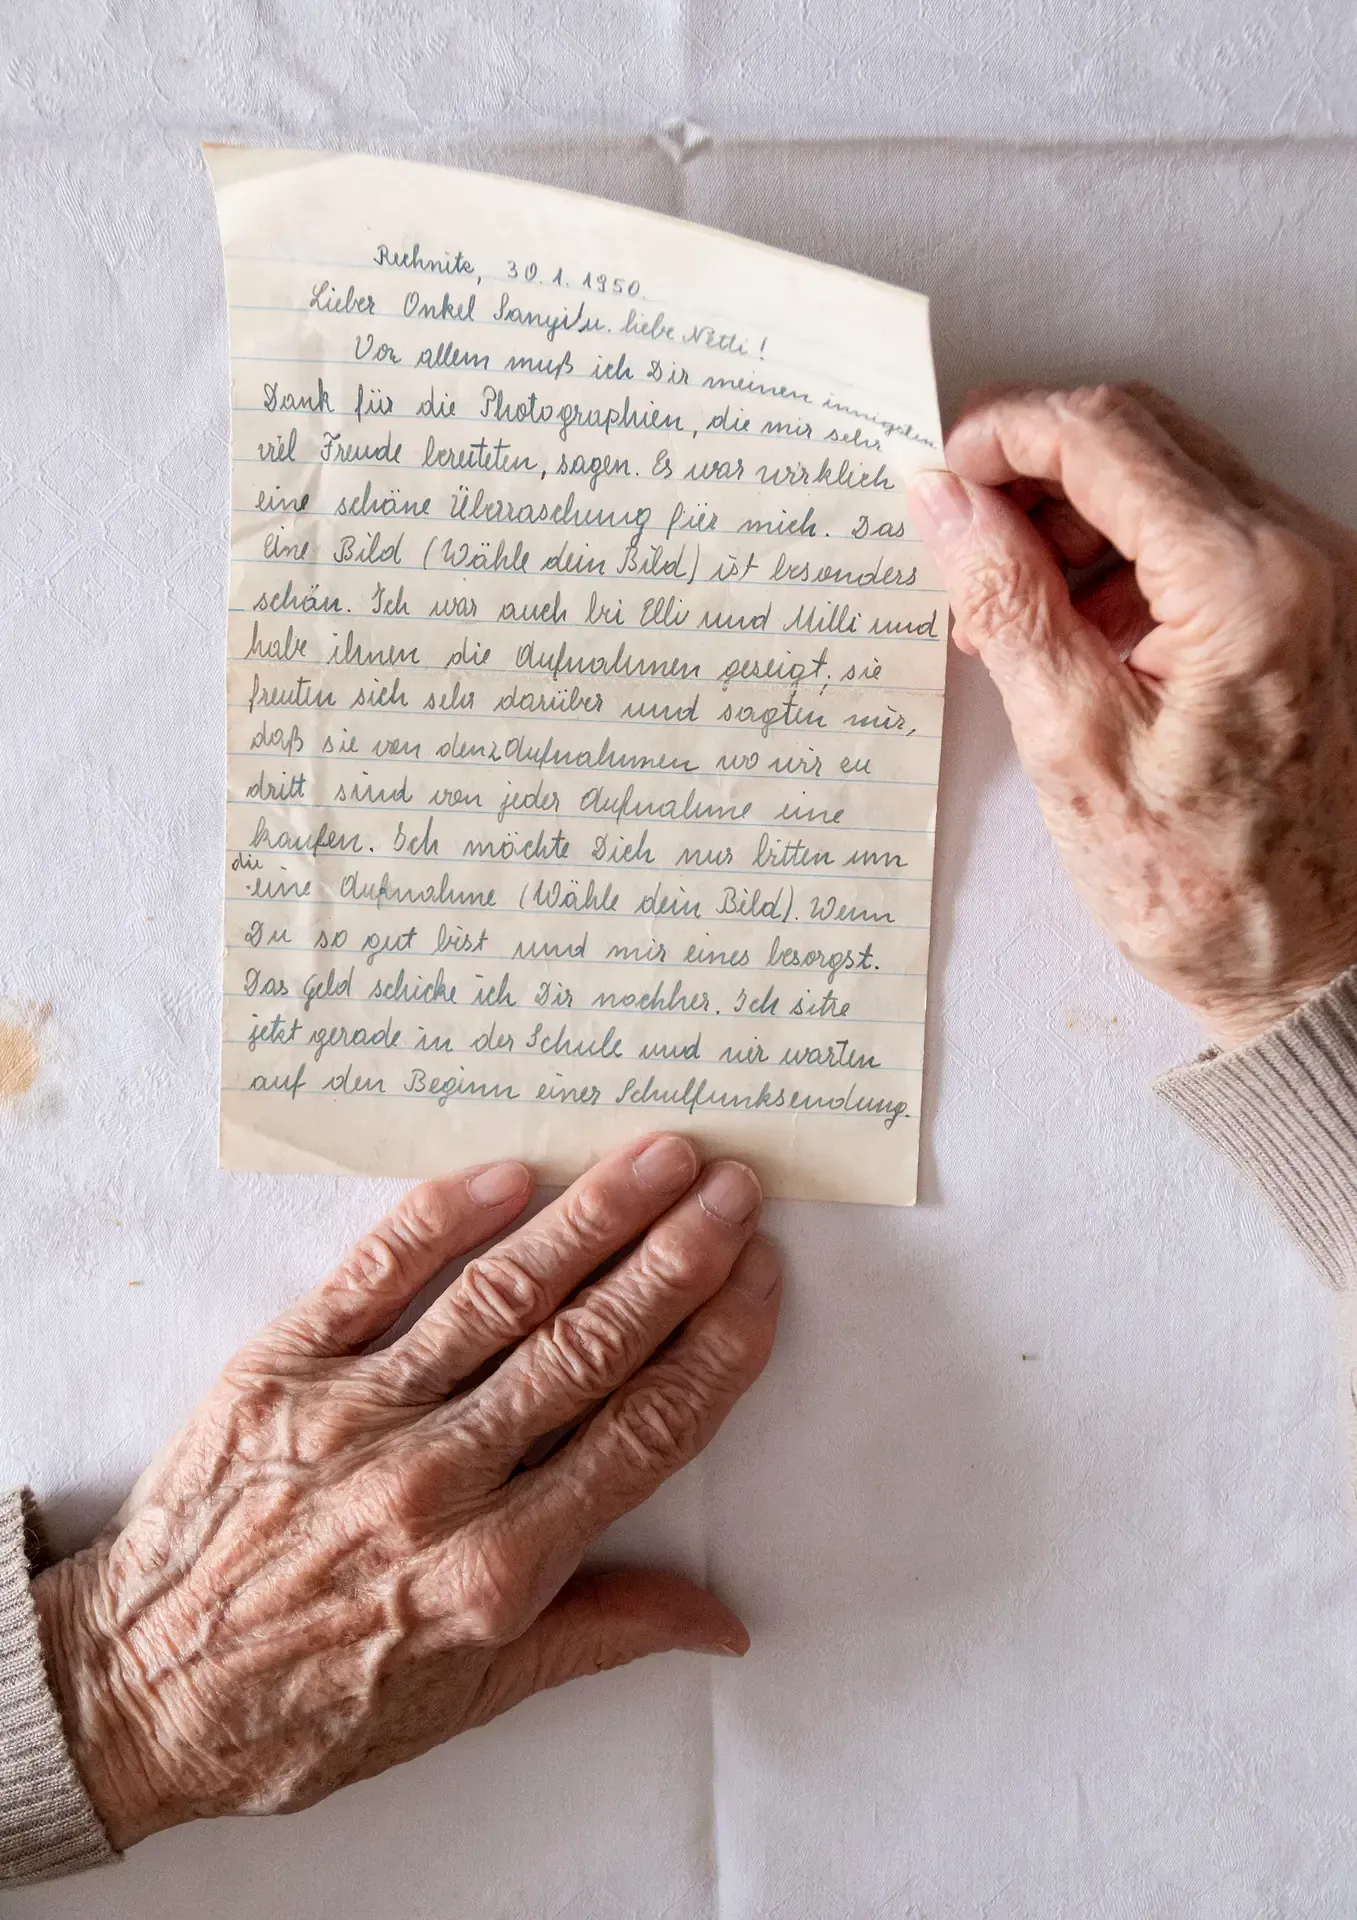 Rechnitz, 30.1.1950.
Lieber Onkel Sanyi u. liebe Netti!
Vor allem muß ich Dir meinen innigsten
Dank für die Photographien, die mir sehr
viel Freude bereiteten, sagen. Es war wirklich
eine schöne Überraschung für mich. Das
eine Bild (Wähle dein Bild) ist besonders
schön. Ich war auch bei Elli und Milli und
habe ihnen die Aufnahmen gezeigt; sie
freuten sich sehr darüber und sagten mir,
daß sie von den 2 Aufnahmen wo wir zu
dritt sind von jeder Aufnahme eine
kaufen. Ich möchte Dich nur bitten um
die
eine Aufnahme (Wähle dein Bild). Wenn
Du so gut bist und mir eines besorgst.
Das Geld schicke ich Dir nachher. Ich sitze
jetzt gerade in der Schule und wir warten
auf den Beginn einer Schulfunksendung.